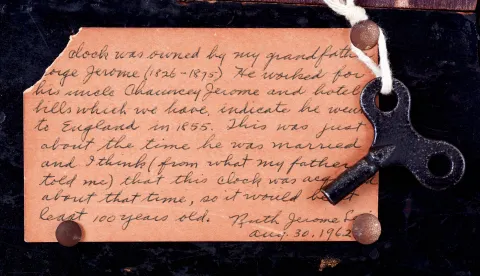 clock was owned by my grandfath
orge Jerome (1826-1875) He worked for
his uncle Chauncey Jerome and hotel
bills which we have, indicate he went
to England in 1855. This was just
about the time he was married
and I think (from what my father
told me) that this clock was acq
about that time, so it would be
least 100 years old. Ruth Jerome
Aug. 30, 1962